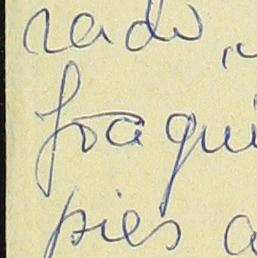 rado,
Joaqui
pies a